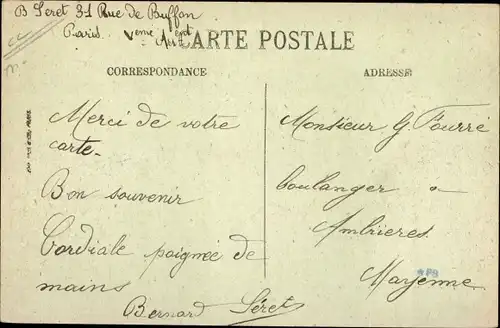 B Seret 31 Rue de Buffon
Paris. Vème Art
CARTE POSTALE
CORRESPONDANCE
ADRESSE
Merci de votre
carte.
Bon souvenir
Cordiale poignée de
mains
Bernard Séret
Monsieur G Fourré
boulanger a
Ambrieres
Mayenne